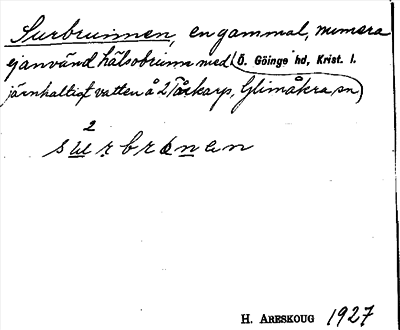 Surbrunnen, en gammal, numera
ej använd hälsobrunn med
Ö. Göinge hd, Krist. l.
järnhaltigt vatten å 2 Tåskarp, Glimåkra sn
2
H. ARESKOUG 1927